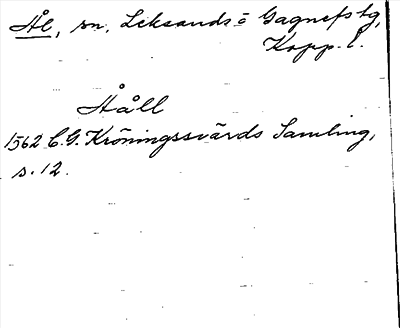 Ål, sn, Leksands- o Gagnefs tg,
Kopp. l.
Ååll
1562 C.G. Kröningssvärds Samling,
s. 12.